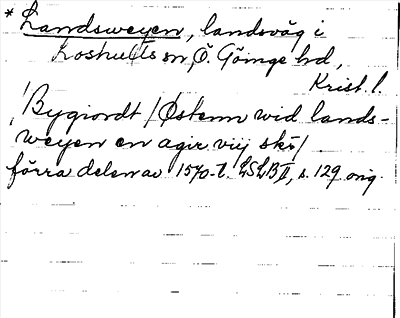 * Landsweyen, landsväg i
Loshults sn, Ö. Göinge hd,
Krist. l.
/Bygiordt / Østenn wid lands-
weyen en agir viij skr/
förra delen av 1570-t. LSLB II, s. 129 orig.